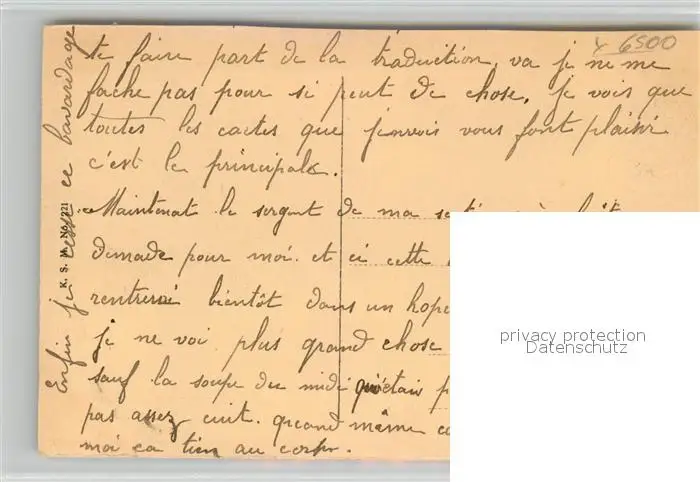 x 6500
te faire part de la traduction, va je ne me
fache pas pour si peut de chose. je vois que
toutes les cartes que j'envois vous font plaisir
c'est le principale.
Maintenat le sergent de ma
demade pour moi. et si cette
rentrerai bientôt dans un hope
je ne voi plus grand chose
sauf la soupe du midi qu'etait p
pas assez cuit. quand même
moi ca tien au corps.
Enfin je cesse ce bavardage
K. S. M. No. 221
privacy protection
Datenschutz